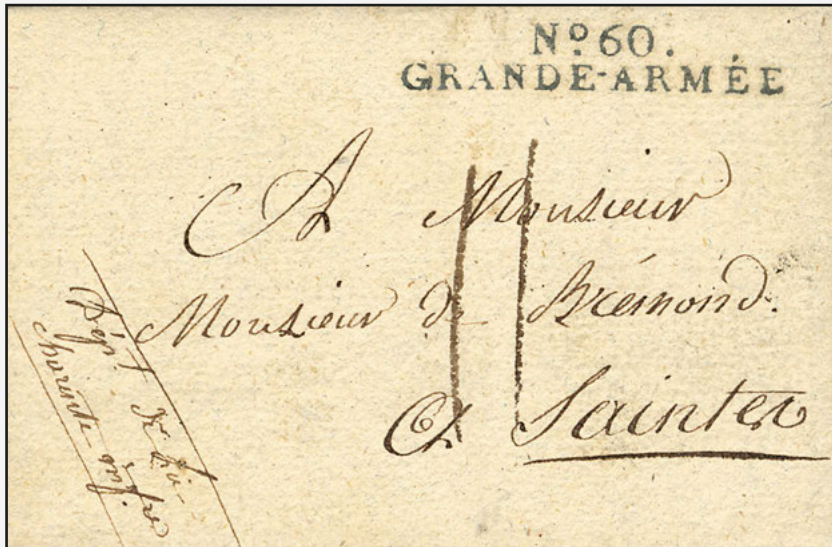 Nº 60.
GRANDE-ARMÉE
A Monsieur
Monsieur de Brémond.
A Saintes
Dépt. de la
Charente infre
11